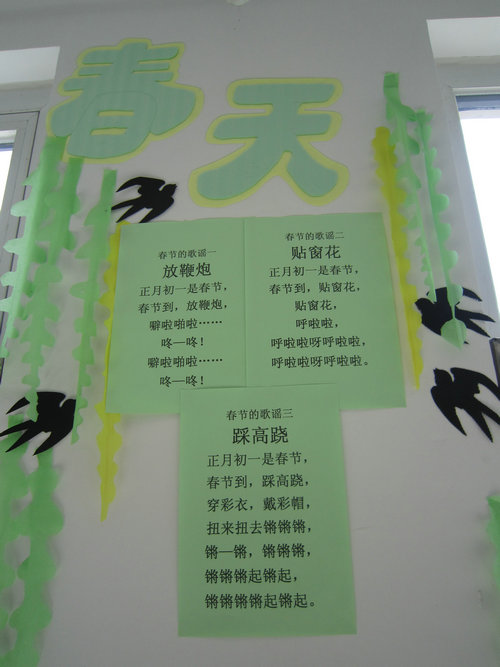 春天
春节的歌谣一
放鞭炮
正月初一是春节，
春节到，放鞭炮，
噼啦啪啦……
咚—咚！
噼啦啪啦……
咚—咚！
春节的歌谣二
贴窗花
正月初一是春节，
春节到，贴窗花，
贴窗花，
呼啦啦，
呼啦啦呀呼啦啦，
呼啦啦呀呼啦啦。
春节的歌谣三
踩高跷
正月初一是春节，
春节到，踩高跷，
穿彩衣，戴彩帽，
扭来扭去锵锵锵，
锵—锵，锵锵锵，
锵锵锵起锵起，
锵锵锵锵起锵起。